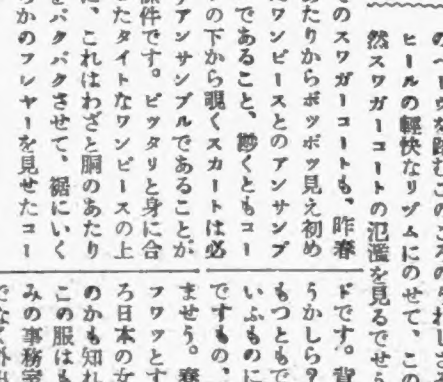 のペーヴを踏むこのごろのうれしさ
ヒールの輕快なリヅムにのせて、この
然スワガーコートの氾濫を見るでせう
そのスワガーコートも、昨春
あたりからボツボツ見え初め
たワンピースとのアンサンブ
であること、尠くともコー
の下から覗くスカートは必
アンサンブルであることが
條件です。ピツタリと身に合
たタイトなワンピースの上
に、これはわざと胴のあたり
をパクパクさせて、裾にいく
かのフレヤーを見せたコー
ドです。背
うかしら?
もつともで
いふものに
ですもの、
ませう。春
フワツとす
ろ日本の女
のかも知れ
この服はも
みの事務室
でなく外出